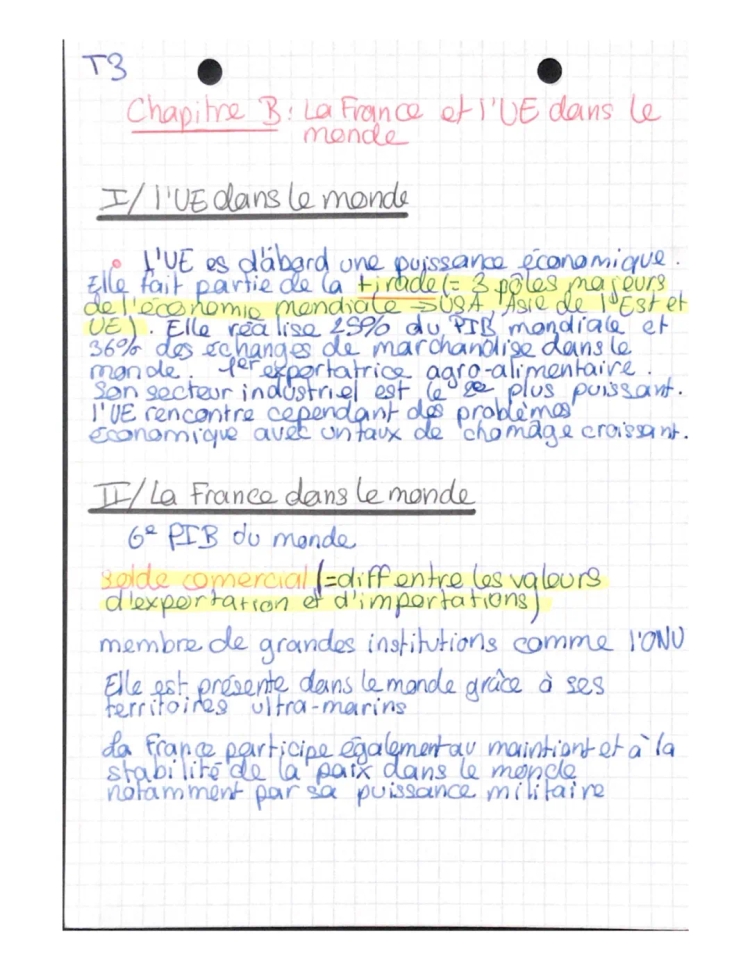 T3
Chapitre B : La France et l'UE dans le
monde
I/ l'UE dans le monde
• L'UE es d'abord une puissance économique.
Elle fait partie de la tirade (= 3 pôles majeurs
de l'économie mondiale → USA, Asie de l'Est et
UE). Elle réalise 25% du PIB mondiale et
36% des échanges de marchandise dans le
monde. 1er exportatrice agro-alimentaire.
Son secteur industriel est le 2e plus puissant.
l'UE rencontre cependant des problèmes
économique avec un taux de chomage croissant.
II/ La France dans le monde
6e PIB du monde
solde comercial (=diff entre les valeurs
d'exportation et d'importations)
membre de grandes institutions comme l'ONU
Elle est présente dans le monde grâce à ses
territoires ultra-marins
La France participe également au maintient et à la
stabilité de la paix dans le monde
notamment par sa puissance militaire